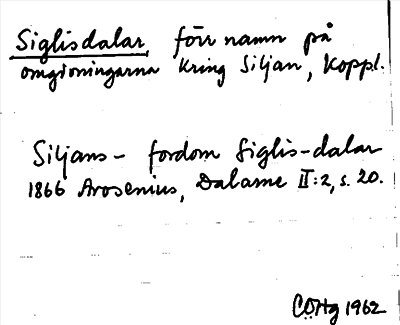 Siglisdalar, förr namn på
omgivningarna kring Siljan, Koppl.
Siljans- fordom Siglis-dalar
1866 Arosenius, Dalarne II:2, s. 20.
CÖHg 1962